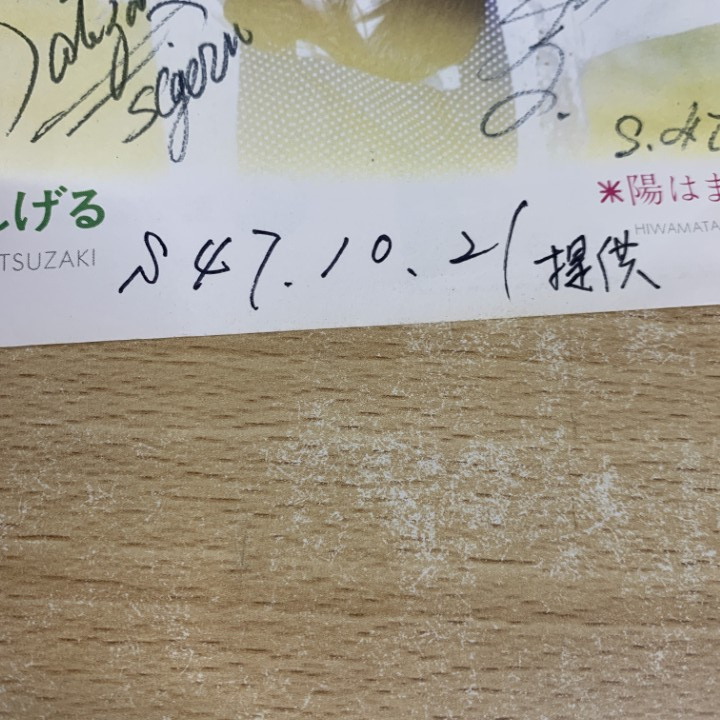 Sigeru
げる
TSUZAKI
*陽はま
HIWAMATA
S47.10.21 提供